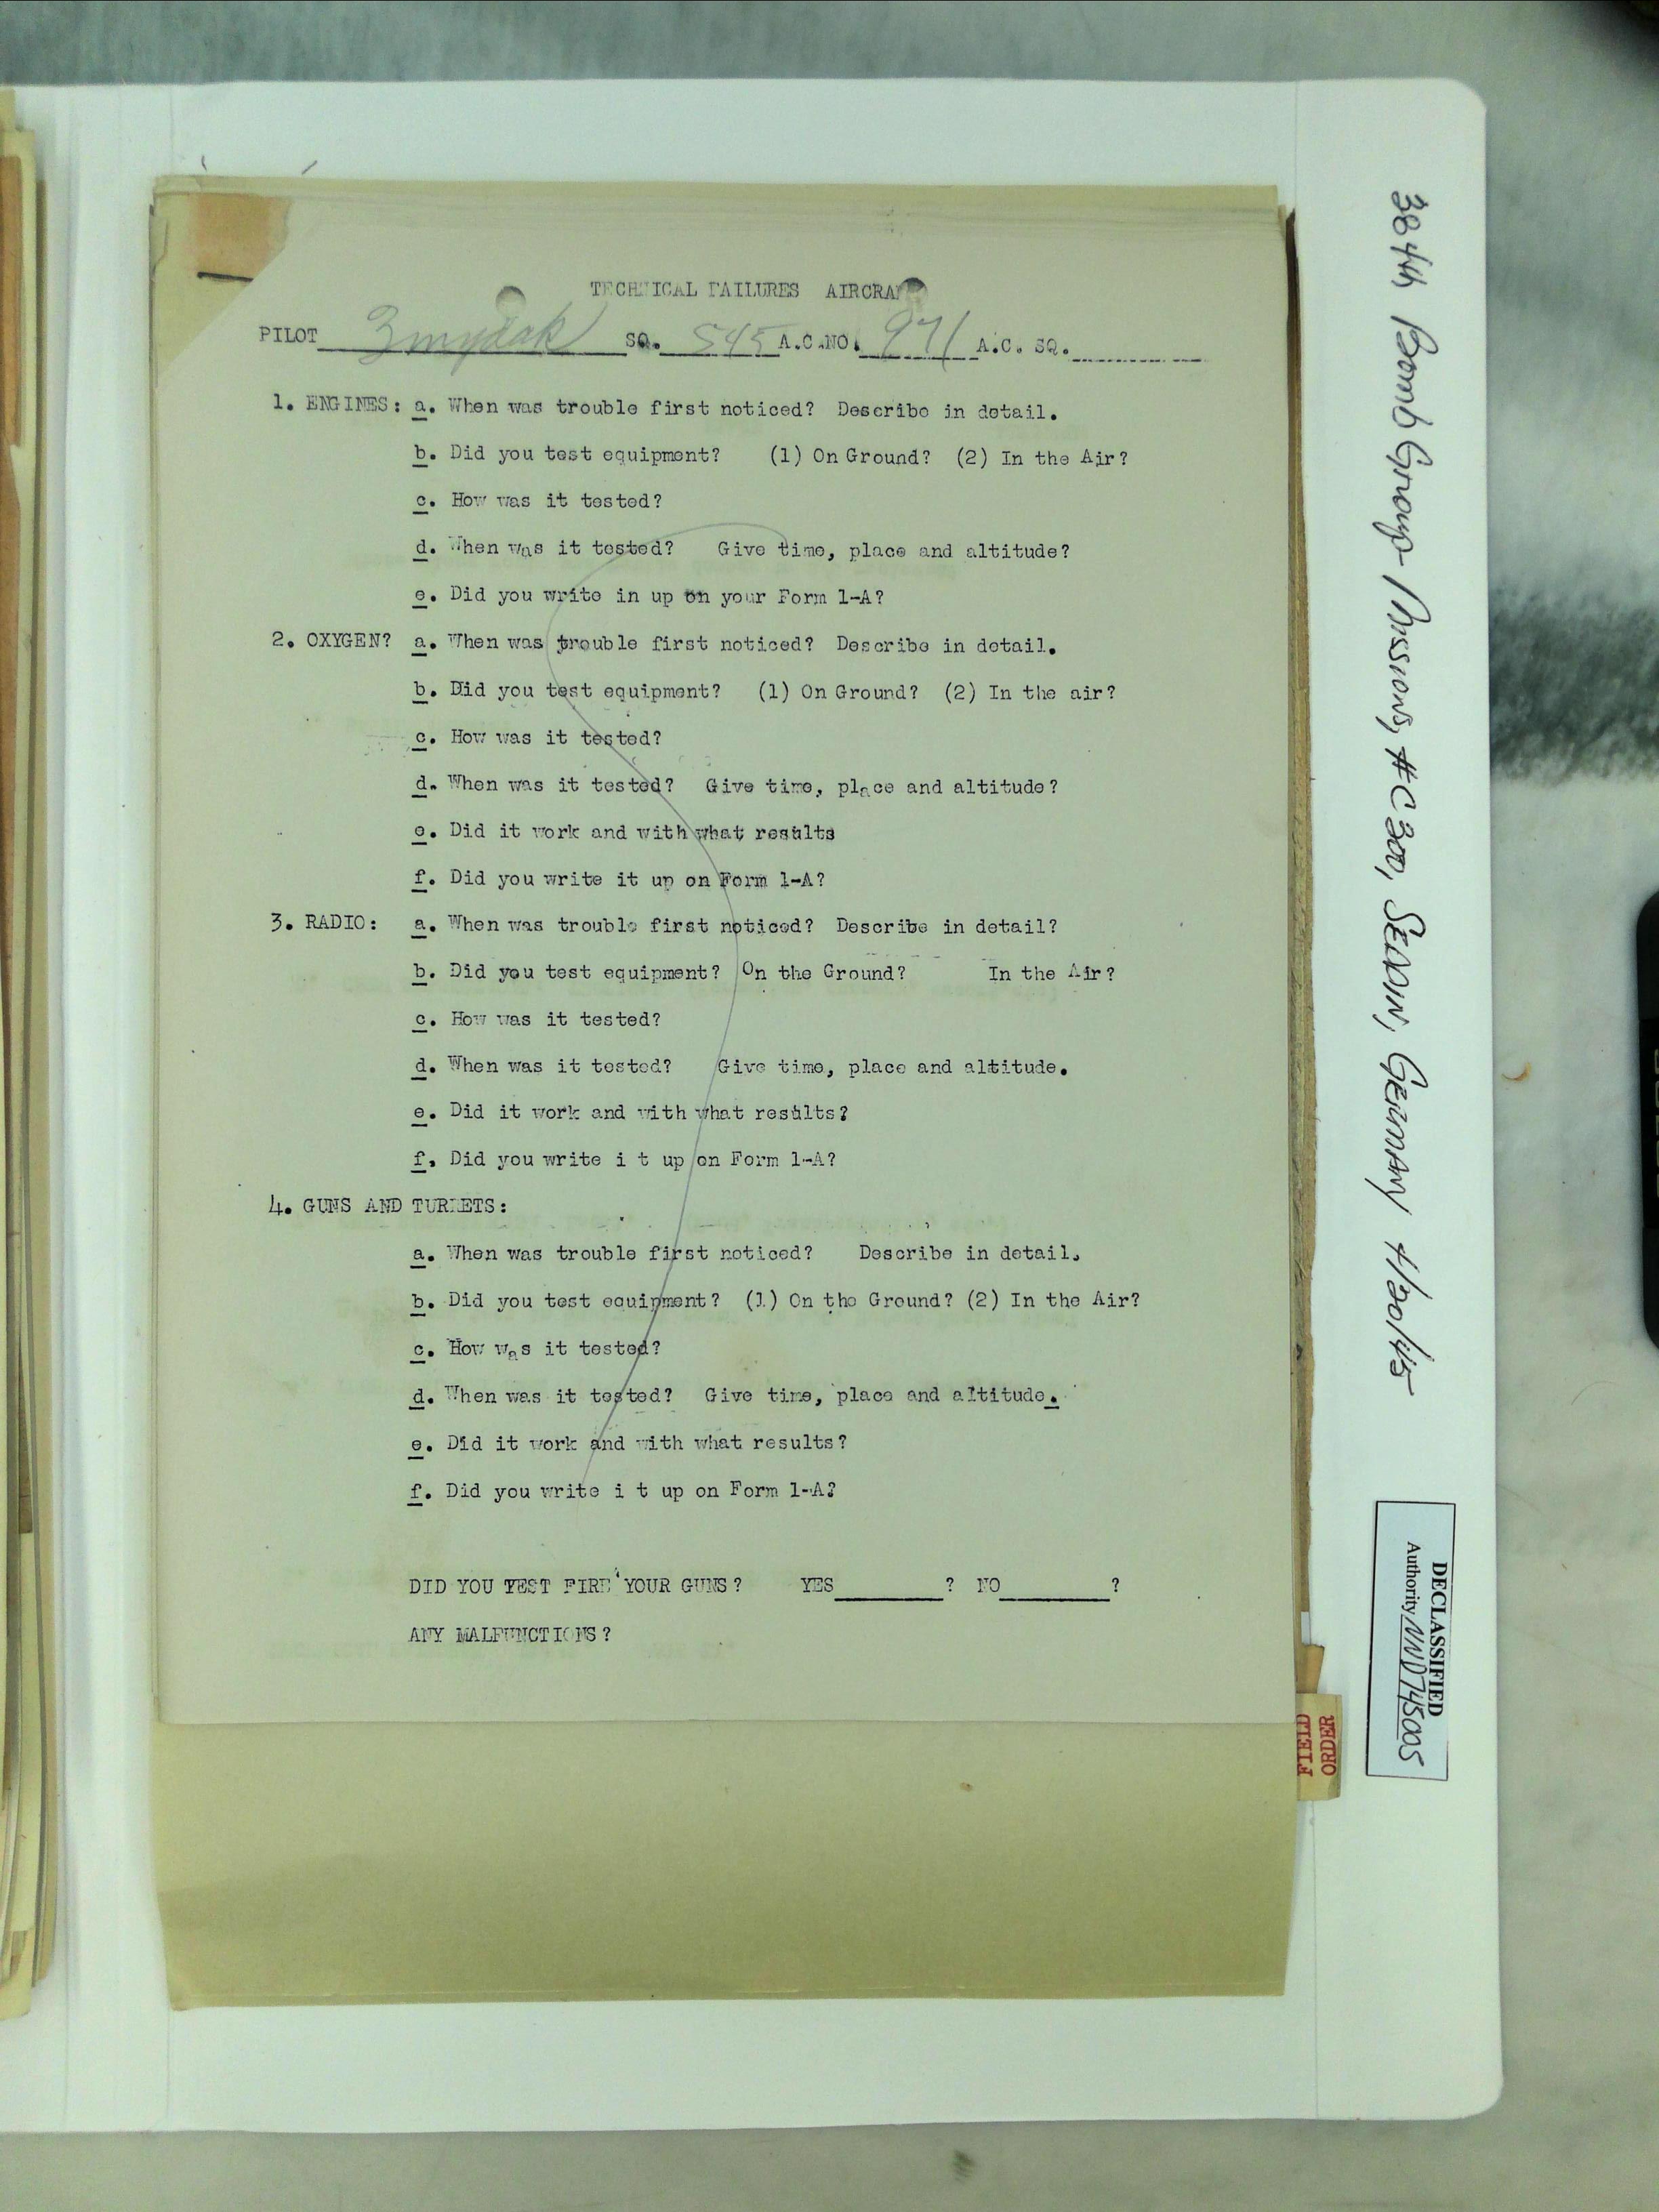 TECHNICAL FAILURES AIRCRAF
PILOT Zmydak SQ. 545 A.C.NO. 971 A.C. SQ.
1. ENGINES: a. When was trouble first noticed? Describe in detail.
b. Did you test equipment? (1) On Ground? (2) In the Air?
c. How was it tested?
d. When was it tested? Give time, place and altitude?
e. Did you write in up on your Form 1-A?
2. OXYGEN? a. When was trouble first noticed? Describe in detail.
b. Did you test equipment? (1) On Ground? (2) In the air?
c. How was it tested?
d. When was it tested? Give time, place and altitude?
e. Did it work and with what results
f. Did you write it up on Form 1-A?
3. RADIO: a. When was trouble first noticed? Describe in detail?
b. Did you test equipment? On the Ground? In the Air?
c. How was it tested?
d. When was it tested? Give time, place and altitude.
e. Did it work and with what results?
f. Did you write i t up on Form 1-A?
4. GUNS AND TURRETS:
a. When was trouble first noticed? Describe in detail.
b. Did you test equipment? (1) On the Ground? (2) In the Air?
c. How was it tested?
d. When was it tested? Give time, place and altitude.
e. Did it work and with what results?
f. Did you write i t up on Form 1-A?
DID YOU TEST FIRE YOUR GUNS? YES ? NO ?
ANY MALFUNCTIONS?
384th Bomb Group - Missions, #C300, Seddin, Germany 4/20/45
DECLASSIFIED
Authority NND745005
FIELD
ORDER